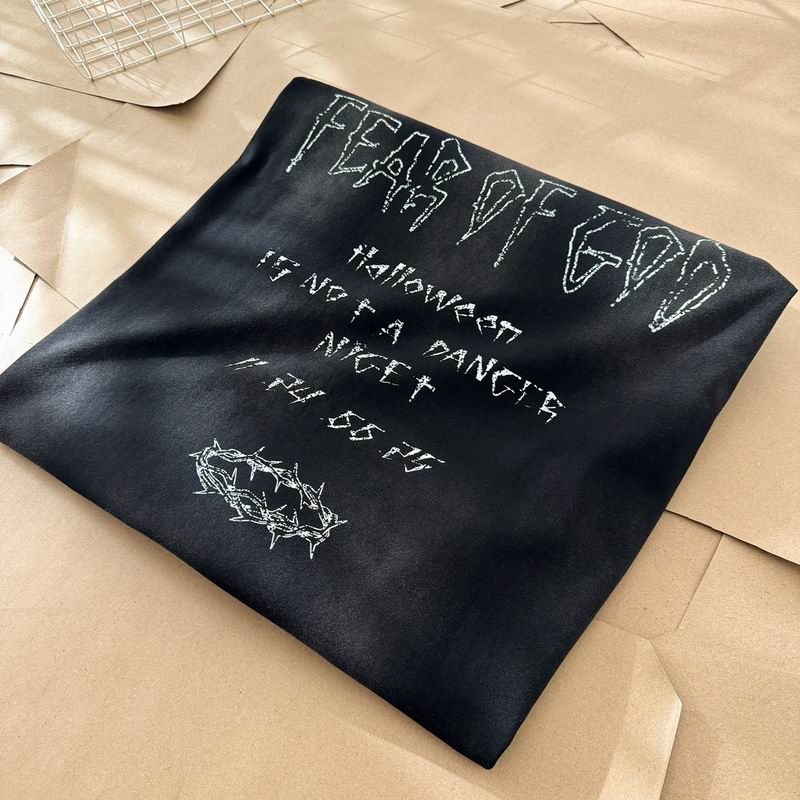 FEAR OF GOD
Halloween
IS NOT A DANGER
NIGET
11 24 66 25